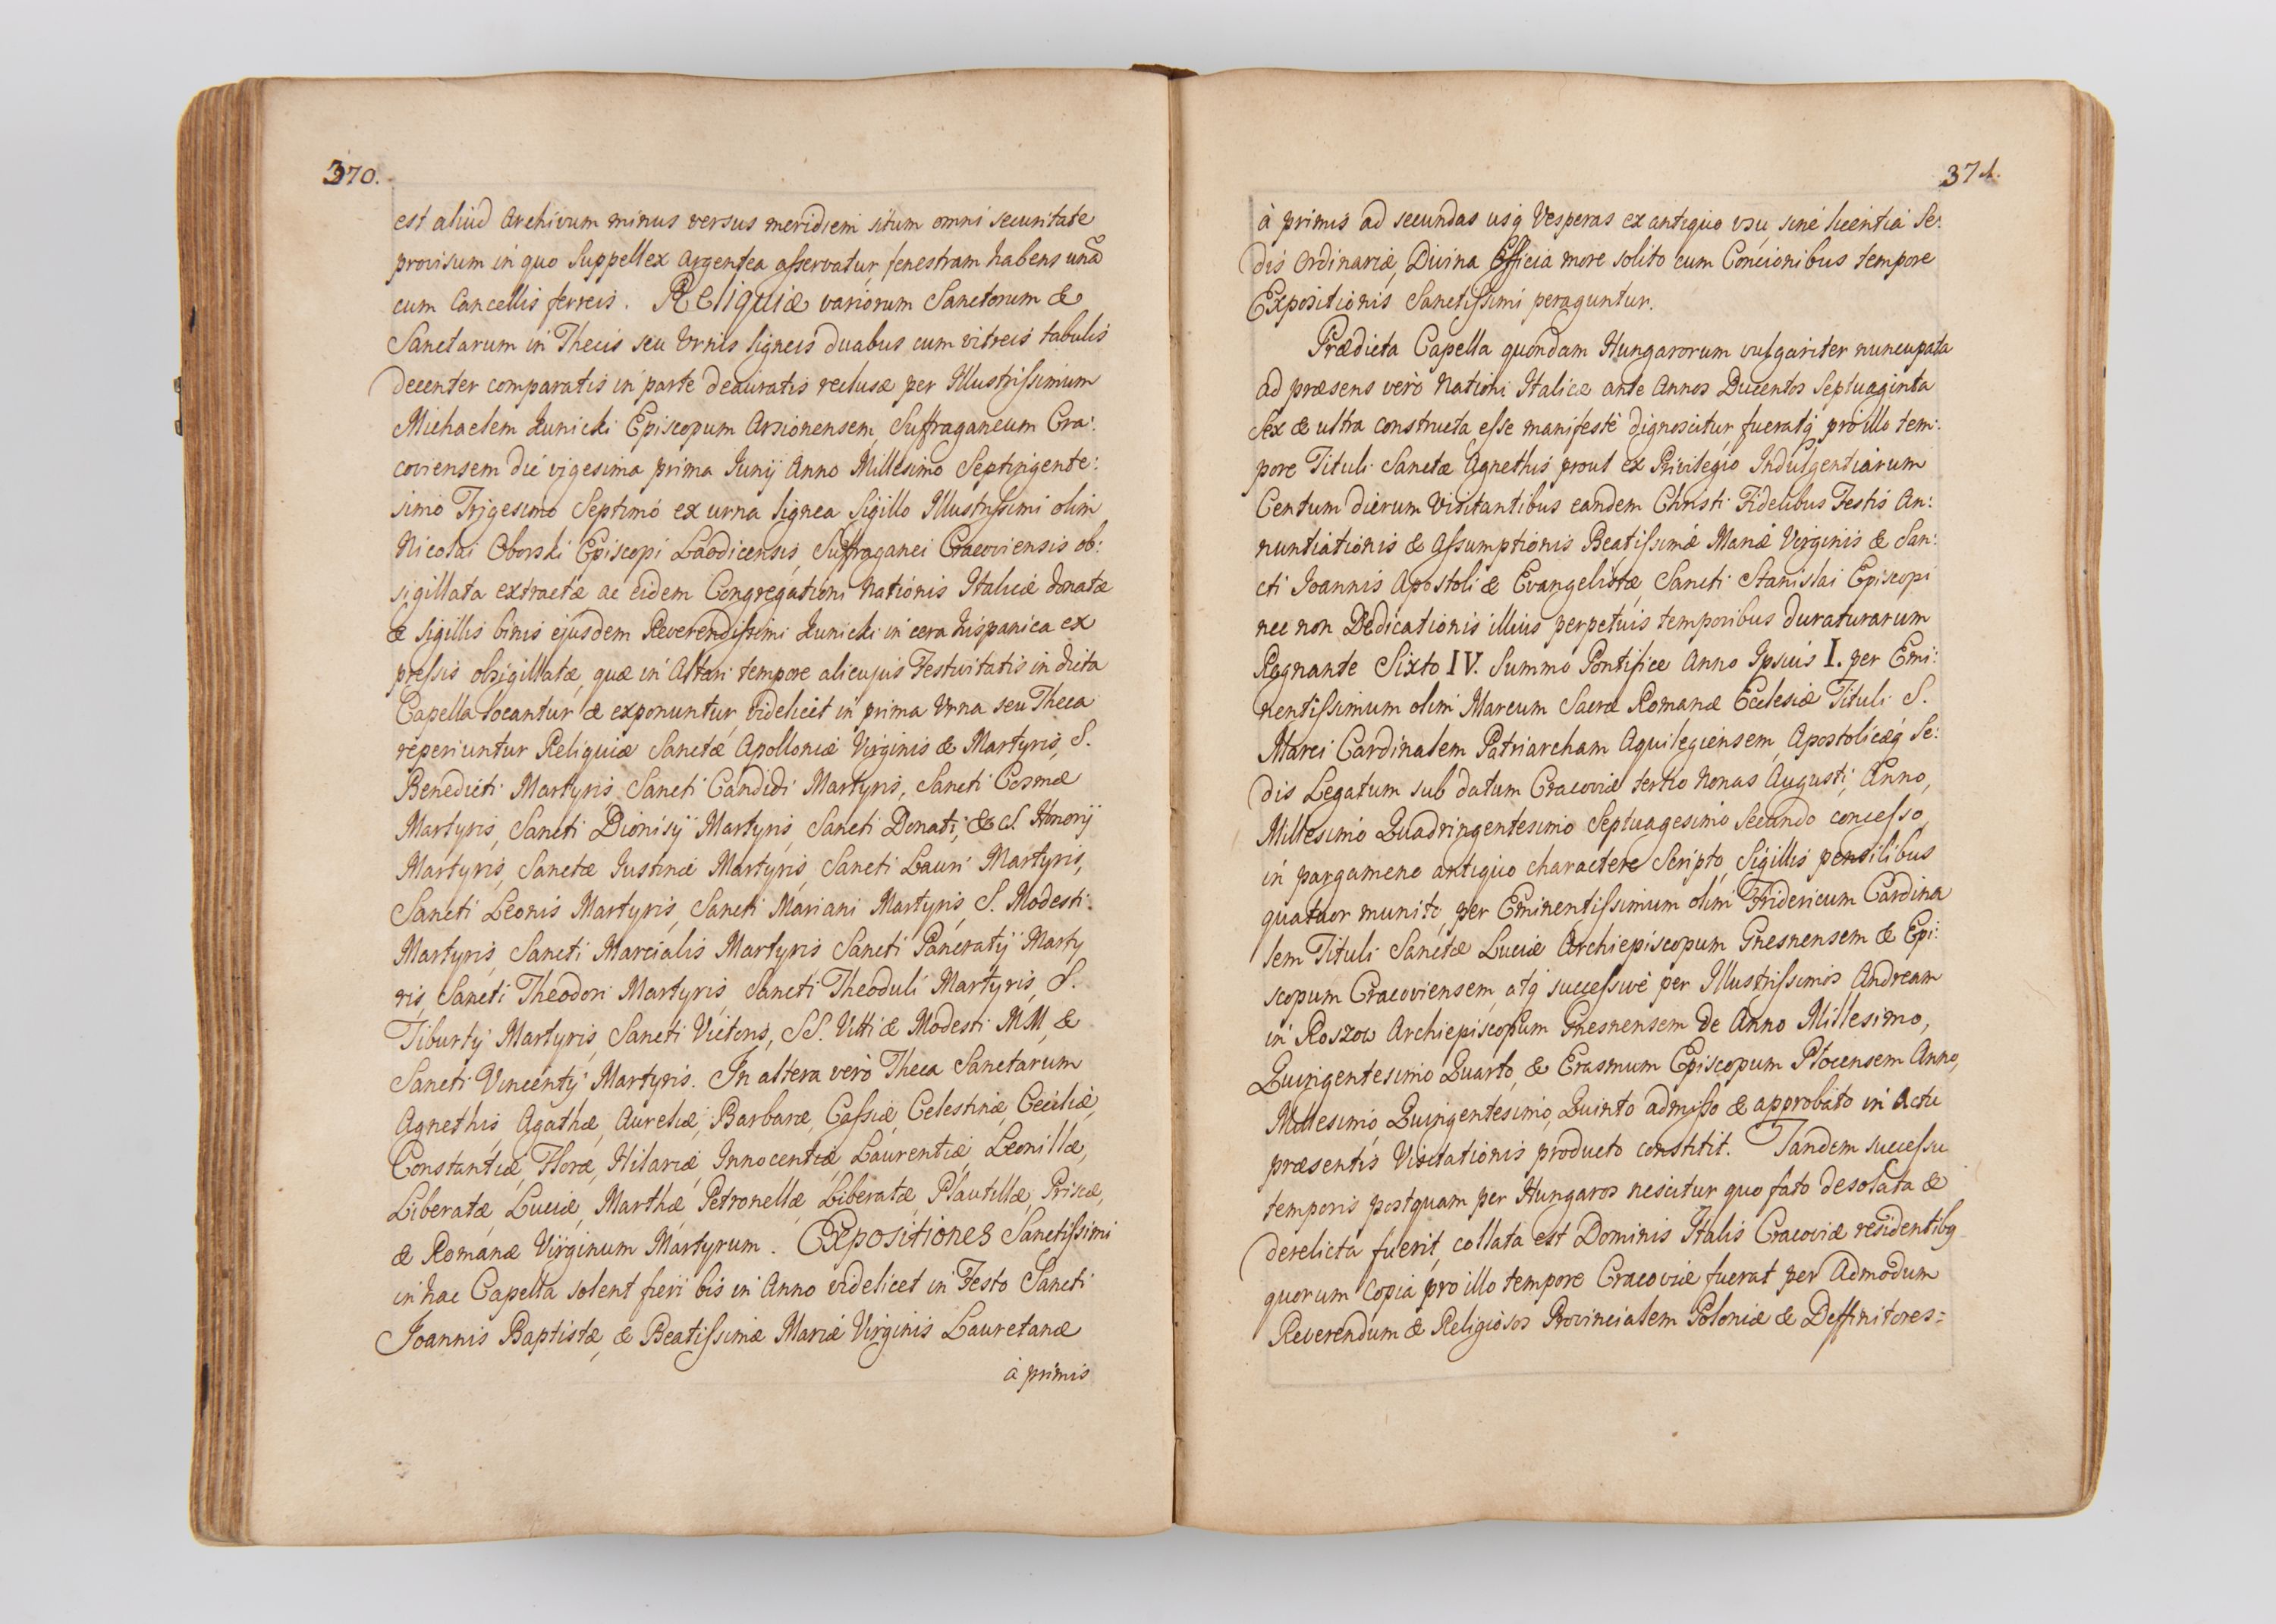 370.
est aliud Archivum minus versus meridiem situm omni securitate
provisum in quo Suppellex Argentea asservatur, fenestram habens unã
cum Cancellis ferreis. Reliquiæ variorum Sanctorum &
Sanctarum in Thecis seu Urnis ligneis duabus cum vitreis tabulis
decenter comparatis in parte deauratis reclusæ per Illustrissimum
Michaelem Kunicki Episcopum Arsionensem, Suffraganeum Cra:
coviensem die vigesima prima Junij Anno Millesimo Septingente:
simo Trigesimo Septimo ex urna lignea Sigillo Illustrissimi olim
Nicolai Oborski Episcopi Laodicensis, Suffraganei Cracoviensis ob:
sigillata extractæ ac eidem Congregationi Nationis Italicæ donatæ
& sigillis binis ejusdem Reverendissimi Kunicki in cera hispanica ex
pressis obsigillatæ, quæ in Altari tempore alicujus Festivitatis in dicta
Capella locantur & exponuntur, videlicet in prima Urna seu Theca
reperiuntur Reliquiæ Sanctæ Apolloniæ Virginis & Martyris, S.
Benedicti Martyris, Sancti Candidi Martyris, Sancti Cosmæ
Martyris, Sancti Dionisij Martyris, Sancti Donati, & S. Honorij
Martyris, Sanctæ Justinæ Martyris, Sancti Lauri Martyris,
Sancti Leonis Martyris, Sancti Mariani Martyris, S. Modesti
Martyris, Sancti Marcialis Martyris Sancti Pancratij Marty
ris, Sancti Theodori Martyris, Sancti Theoduli Martyris, S.
Tiburtij Martyris, Sancti Victoris, SS. Vitti & Modesti MM, &
Sancti Vincentij Martyris. In altera verò Theca Sanctarum
Agnethis, Agathæ, Aureliæ, Barbaræ, Cassiæ, Celestinæ, Ceciliæ,
Constantiæ, Floræ, Hilariæ, Innocentiæ, Laurentiæ, Leonillæ,
Liberatæ, Luciæ, Marthæ, Petronellæ, Liberatæ, Plautillæ, Priscæ,
& Romanæ Virginum Martyrum. Expositiones Sanctissimi
in hac Capella solent fieri bis in Anno videlicet in Festo Sancti
Joannis Baptistæ, & Beatissimæ Mariæ Virginis Lauretanæ
à primis
371.
à primis ad secundas usq Vesperas ex antiquo usu, sine licentia Se:
dis Ordinariæ, Divina Officia more solito cum Concionibus tempore
Expositionis Sanctissimi peraguntur.
Prædicta Capella quondam Hungarorum vulgariter nuncupata
ad præsens verò Nationi Italicæ ante Annos Ducentos Septuaginta
Sex & ultra constructa esse manifestè dignoscitur, fueratq pro illo tem:
pore Tituli Sanctæ Agnethis prout ex Privilegio Indulgentiarum
Centum dierum Visitantibus eandem Christi Fidelibus Festis An:
nuntiationis & Assumptionis Beatissimæ Mariæ Virginis & San:
cti Joannis Apostoli & Evangelistæ, Sancti Stanislai Episcopi
nec non Dedicationis illius perpetuis temporibus duraturarum
Regnante Sixto IV. Summo Pontifice Anno Ipsius I. per Emi:
nentissimum olim Marcum Sacræ Romanæ Ecclesiæ Tituli S.
Marci Cardinalem Patriarcham Aquilegiensem, Apostolicæq Se:
dis Legatum sub datum Cracoviæ tertio Nonas Augusti, Anno,
Millesimo Quadringentesimo Septuagesimo Secundo concesso,
in pargameno antiquo charactere Scripto, Sigillis pensilibus
quatuor munito, per Eminentissimum olim Fridericum Cardina
lem Tituli Sanctæ Luciæ Archiepiscopum Gnesnensem & Epi:
scopum Cracoviensem, atq successivè per Illustrissimos Andream
in Roszow Archiepiscopum Gnesnensem De Anno Millesimo,
Quingentesimo Quarto, & Erasmum Episcopum Plocensem Anno,
Millesimo, Quingentesimo, Quinto admisso & approbato in Actu
præsentis Visitationis producto constitit. Tandem successu
temporis postquam per Hungaros nescitur quo fato desolata &
derelicta fuerit, collata est Dominis Italis Cracoviæ residentibq
quorum Copia pro illo tempore Cracoviæ fuerat per Admodum
Reverendum & Religiosos Provincialem Poloniæ & Deffinitores=